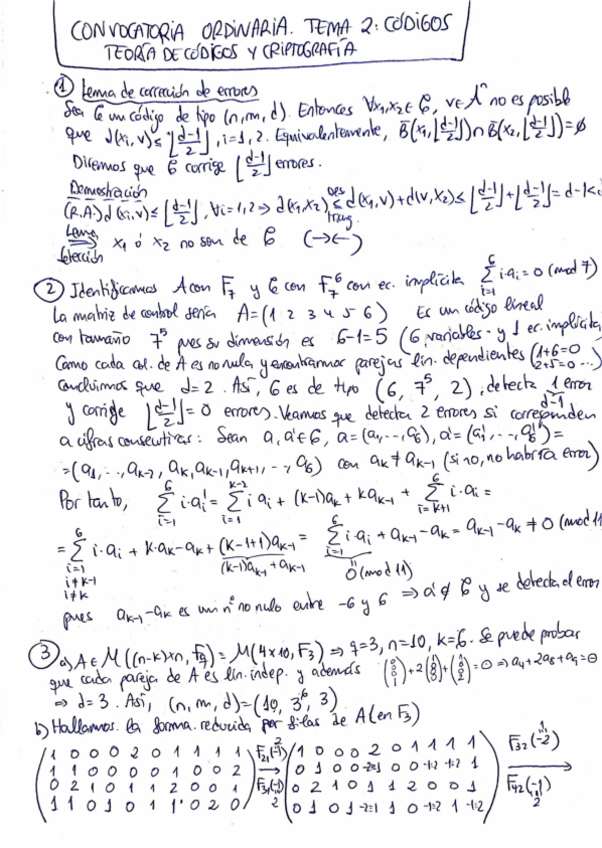 CONVOCATORIA ORDINARIA. TEMA 2: CÓDIGOS
TEORÍA DE CÓDIGOS Y CRIPTOGRAFÍA
① Lema de corrección de errores
Sea C un código de tipo (n, m, d). Entonces ∀x₁,x₂ ∈ C, v ∈ Aⁿ no es posible
que d(xᵢ,v) ≤ ⌊(d-1)/2⌋, i=1,2. Equivalentemente, B̄(x₁,⌊(d-1)/2⌋) ∩ B̄(x₂,⌊(d-1)/2⌋) = ∅
Diremos que C corrige ⌊(d-1)/2⌋ errores.
Demostración
(R.A.) d(xᵢ,v) ≤ ⌊(d-1)/2⌋, ∀i=1,2 ⇒ d(x₁,x₂) ≤ d(x₁,v)+d(v,x₂) ≤ ⌊(d-1)/2⌋+⌊(d-1)/2⌋ = d-1 < d
des trian
Lema detección ⇒ x₁ ó x₂ no son de C (→←)
② Identificamos A con F₇ y C con F₇⁶ con ec. implícita ∑ᵢ₌₁⁶ i·aᵢ = 0 (mod 7)
La matriz de control sería A=(1 2 3 4 5 6) Es un código lineal
con tamaño 7⁵ pues su dimensión es 6-1=5 (6 variables y 1 ec. implícita)
Como cada col. de A es no nula y encontramos parejas lin. dependientes (1+6=0 2+5=0 ...)
concluimos que d=2. Así, C es de tipo (6, 7⁵, 2), detecta 1 error
d-1
y corrige ⌊(d-1)/2⌋=0 errores. Veamos que detecta 2 errores si corresponden
a cifras consecutivas: Sean a, a' ∈ C, a=(a₁,...,a₆), a'=(a₁',...,a₆')=
=(a₁,...,aₖ₋₂, aₖ, aₖ₋₁, aₖ₊₁,...,a₆) con aₖ ≠ aₖ₋₁ (si no, no habría error)
Por tanto, ∑ᵢ₌₁⁶ i·aᵢ' = ∑ᵢ₌₁ᵏ⁻² i aᵢ + (k-1)aₖ + kaₖ₋₁ + ∑ᵢ₌ₖ₊₁⁶ i·aᵢ =
= ∑ᵢ₌₁⁶ i·aᵢ + k·aₖ - aₖ + (k-1+1)aₖ₋₁ = ∑ᵢ₌₁⁶ i·aᵢ + aₖ₋₁ - aₖ = aₖ₋₁ - aₖ ≠ 0 (mod 11)
i≠k-1 (k-1)aₖ₋₁ + aₖ₋₁ 0 (mod 11) ⇒ a' ∉ C y se detecta el error
i≠k
pues aₖ₋₁ - aₖ es un nº no nulo entre -6 y 6
③ a) A ∈ M((n-k)×n, F_q) = M(4×10, F₃) ⇒ q=3, n=10, k=6. Se puede probar
que cada pareja de A es lin. indep. y además
⇒ d=3. Así, (n, m, d)=(10, 3⁶, 3)
b) Hallamos la forma reducida por filas de A (en F₃)
1 0 0 0 2 0 1 1 1 1 F₂₁(-1) 2 1 0 0 0 2 0 1 1 1 1 F₃₂(-2) 1
1 1 0 0 0 0 1 0 0 2 → 0 1 0 0 -2=1 0 0 -1=2 -1=2 1 →
0 2 1 0 1 1 2 0 0 1 F₃₁(-1) 2 0 2 1 0 1 1 2 0 0 1 F₄₂(-1) 2
1 1 0 1 0 1 1 0 2 0 0 1 0 1 -2=1 1 0 -1=2 1 -1=2